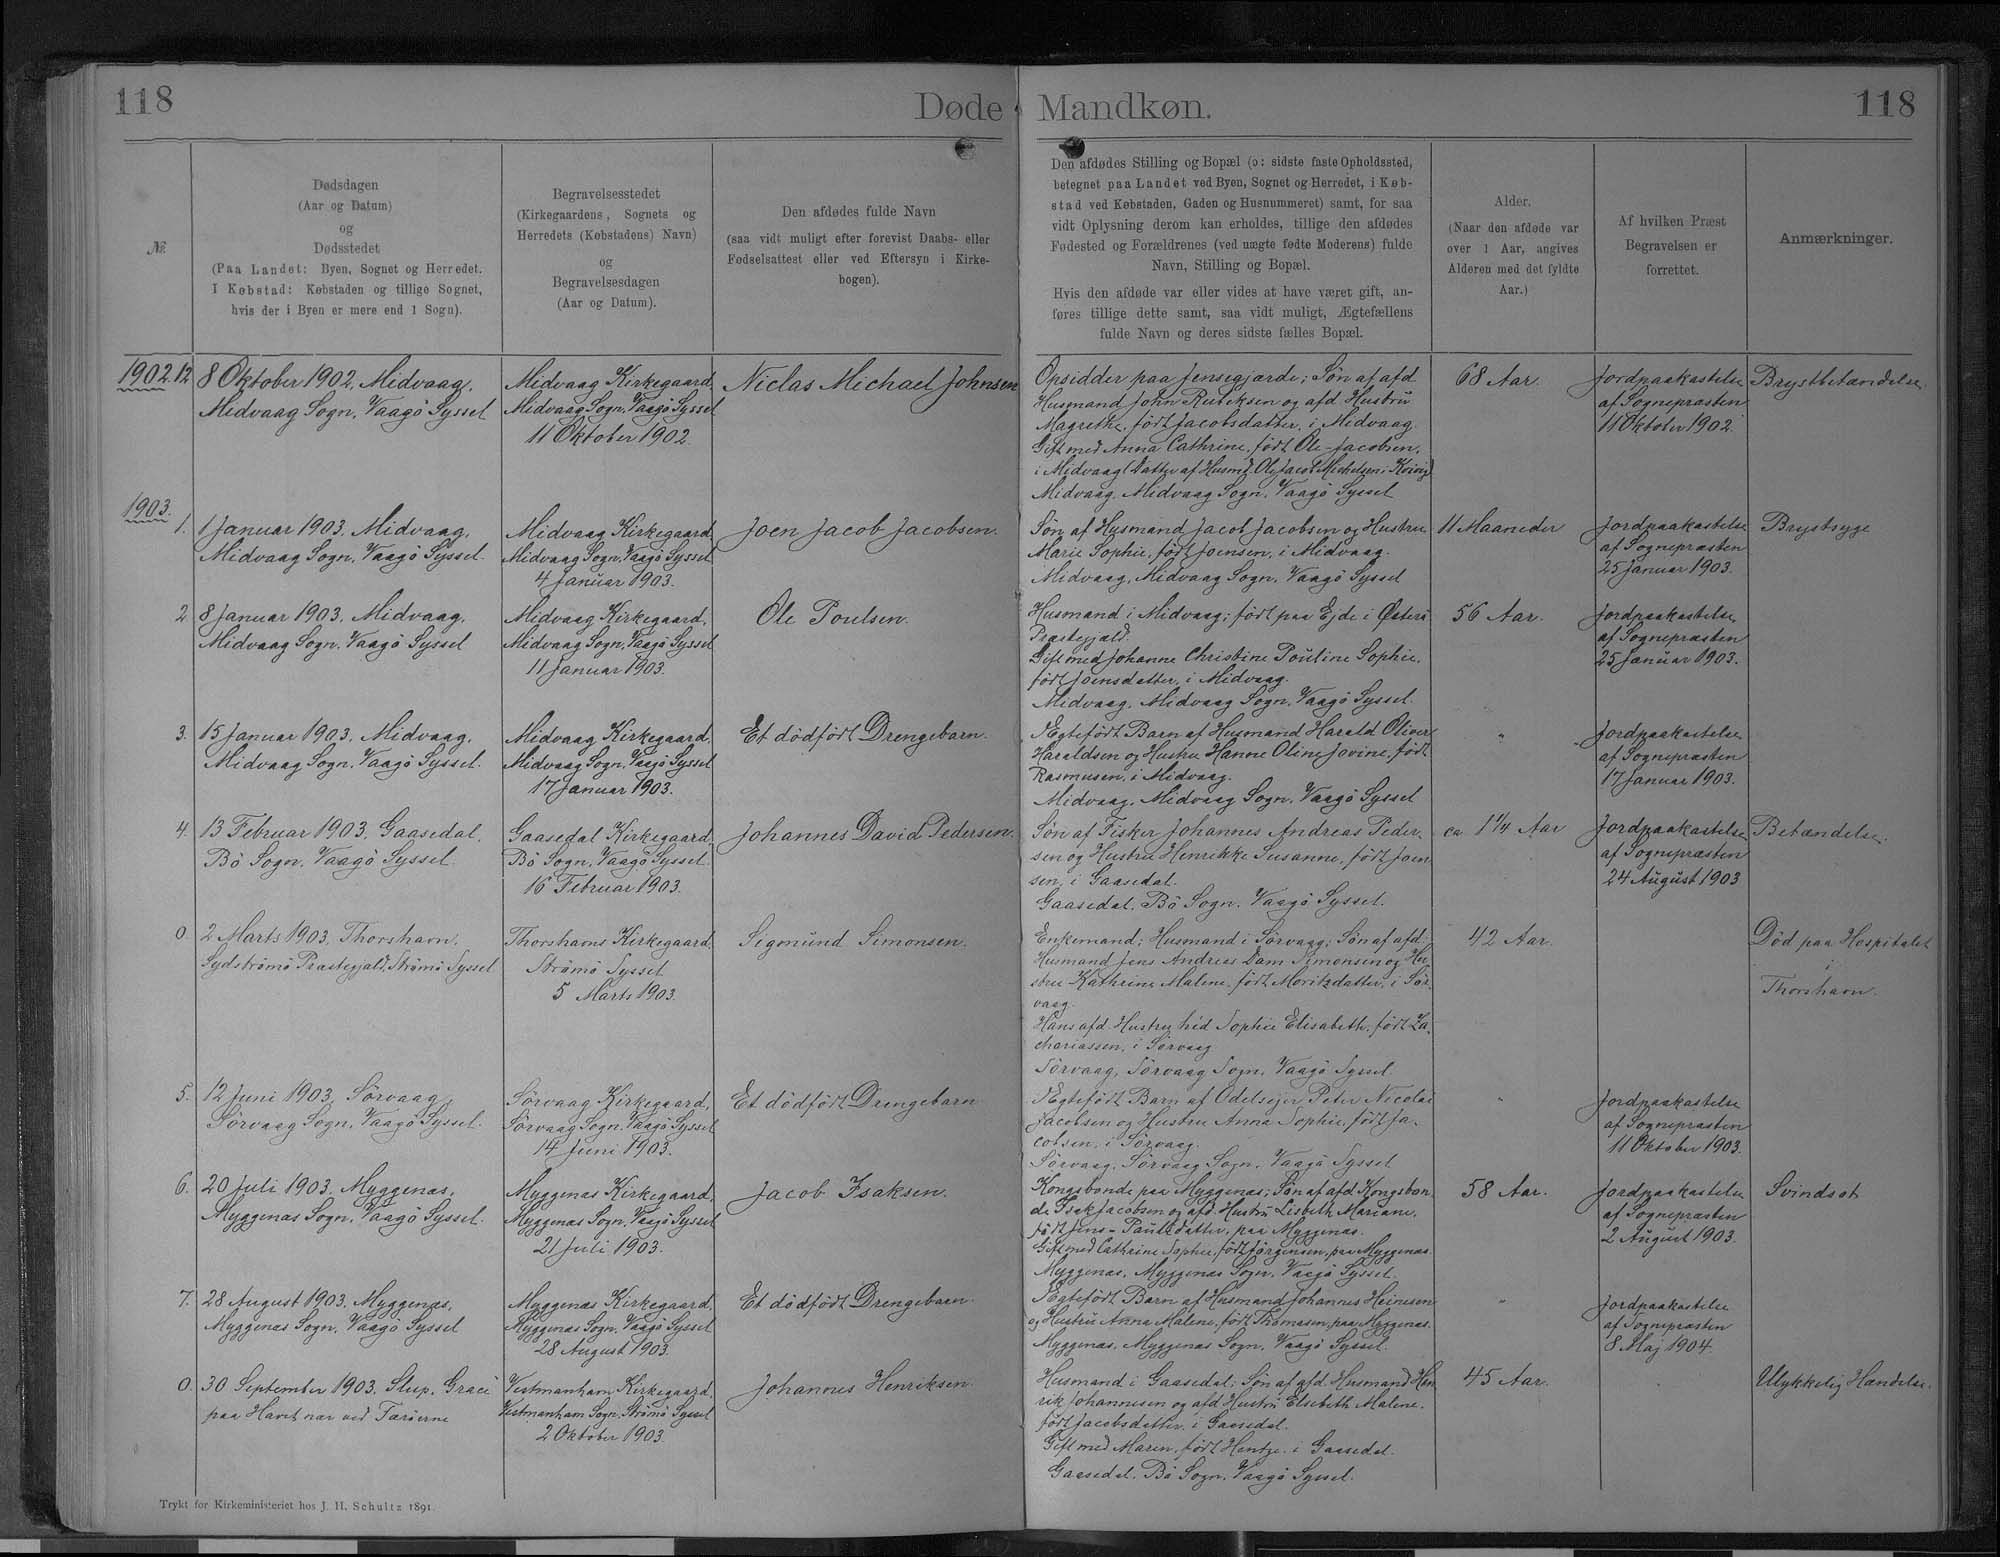 118
Døde
Mandkøn.
118
№
Dødsdagen
(Aar og Datum)
og
Dødsstedet
(Paa Landet: Byen, Sognet og Herredet.
I Købstad: Købstaden og tillige Sognet,
hvis der i Byen er mere end 1 Sogn).
Begravelsesstedet
(Kirkegaardens, Sognets og
Herredets (Købstadens) Navn)
og
Begravelsesdagen
(Aar og Datum).
Den afdødes fulde Navn
(saa vidt muligt efter forevist Daabs- eller
Fødselsattest eller ved Eftersyn i Kirke-
bogen).
Den afdødes Stilling og Bopæl (ɔ: sidste faste Opholdssted,
betegnet paa Landet ved Byen, Sognet og Herredet, i Køb-
stad ved Købstaden, Gaden og Husnummeret) samt, for saa
vidt Oplysning derom kan erholdes, tillige den afdødes
Fødested og Forældrenes (ved uægte fødte Moderens) fulde
Navn, Stilling og Bopæl.
Hvis den afdøde var eller vides at have været gift, an-
føres tillige dette samt, saa vidt muligt, Ægtefællens
fulde Navn og deres sidste fælles Bopæl.
Alder.
(Naar den afdøde var
over 1 Aar, angives
Alderen med det fyldte
Aar.)
Af hvilken Præst
Begravelsen er
forrettet.
Anmærkninger.
1902. 12
8 Oktober 1902. Midvaag,
Midvaag Sogn, Vaagö Syssel
Midvaag Kirkegaard,
Midvaag Sogn, Vaagö Syssel
11 Oktober 1902.
Niclas Michael Johnsen
Opsidder paa Jensegjærde; Søn af afd.
Husmand John Rubeksen og afd. Hustru
Magrethe, født Jacobsdatter, i Midvaag.
Gift med Anna Cathrine, født Ole-Jacobsen,
i Midvaag (Datter af Husmd. Ole Jacob Michelsen i Kvivig)
Midvaag, Midvaag Sogn, Vaagö Syssel
68 Aar.
Jordpaakastelse
af Sognepræsten
11 Oktober 1902.
Brystbetændelse.
1903.
1.
1 Januar 1903. Midvaag,
Midvaag Sogn, Vaagö Syssel.
Midvaag Kirkegaard,
Midvaag Sogn, Vaagö Syssel
4 Januar 1903.
Joen Jacob Jacobsen.
Søn af Husmand Jacob Jacobsen og Hustru
Marie Sophie, født Joensen, i Midvaag.
Midvaag, Midvaag Sogn, Vaagö Syssel
11 Maaneder
Jordpaakastelse
af Sognepræsten
25 Januar 1903.
Brystsyge
2
8 Januar 1903. Midvaag,
Midvaag Sogn, Vaagö Syssel
Midvaag Kirkegaard,
Midvaag Sogn, Vaagö Syssel
11 Januar 1903.
Ole Poulsen.
Husmand i Midvaag; født paa Ejde i Østerö
Præstegjæld.
Gift med Johanne Christine Pouline Sophie,
født Joensdatter, i Midvaag.
Midvaag, Midvaag Sogn, Vaagö Syssel.
56 Aar.
Jordpaakastelse
af Sognepræsten
25 Januar 1903.
3.
15 Januar 1903. Midvaag,
Midvaag Sogn, Vaagö Syssel.
Midvaag Kirkegaard,
Midvaag Sogn, Vaagö Syssel
17 Januar 1903.
Et dödfödt Drengebarn.
Ægtefödt Barn af Husmand Harald Oliver
Haraldsen og Hustru Hanne Oline Jovine, født
Rasmusen, i Midvaag.
Midvaag, Midvaag Sogn, Vaagö Syssel
"
Jordpaakastelse
af Sognepræsten
17 Januar 1903.
4.
13 Februar 1903. Gaasedal,
Bö Sogn, Vaagö Syssel.
Gaasedal Kirkegaard,
Bö Sogn, Vaagö Syssel.
16 Februar 1903.
Johannes David Pedersen.
Søn af Fisker Johannes Andreas Peder-
sen og Hustru Henrikke Susanne, født Joen
sen, i Gaasedal.
Gaasedal, Bö Sogn, Vaagö Syssel.
ca 1¼ Aar
Jordpaakastelse
af Sognepræsten
24 August 1903
Betændelse.
0.
2 Marts 1903. Thorshavn,
Sydströmö Præstegjæld, Strömö Syssel
Thorshavns Kirkegaard,
Strömö Syssel
5 Marts 1903.
Sigmund Simonsen.
Enkemand; Husmand i Sörvaag; Søn af afd.
Husmand Jens Andreas Dam Simonsen og Hu-
stru Kathrine Malene, født Moritzdatter, i Sör-
vaag.
Hans afd. Hustru hed Sophie Elisabeth, født Za-
chariassen, i Sörvaag
Sörvaag, Sörvaag Sogn, Vaagö Syssel
42 Aar.
Död paa Hospitalet
i
Thorshavn.
5.
12 Juni 1903. Sörvaag,
Sörvaag Sogn, Vaagö Syssel.
Sörvaag Kirkegaard,
Sörvaag Sogn, Vaagö Syssel
14 Juni 1903.
Et dödfödt Drengebarn
Ægtefödt Barn af Odelsejer Peter Nicolai
Jacobsen og Hustru Anna Sophie, født Ja-
cobsen, i Sörvaag.
Sörvaag, Sörvaag Sogn, Vaagö Syssel
"
Jordpaakastelse
af Sognepræsten
11 Oktober 1903.
6.
20 Juli 1903. Myggenæs,
Myggenæs Sogn, Vaagö Syssel.
Myggenæs Kirkegaard,
Myggenæs Sogn, Vaagö Syssel
21 Juli 1903.
Jacob Isaksen.
Kongsbonde paa Myggenæs; Søn af afd. Kongsbon-
de Isak Jacobsen og afd. Hustru Lisbeth Mariane,
født Jens-Paulsdatter, paa Myggenæs.
Gift med Cathrine Sophie, født Jörgensen, paa Myggenæs.
Myggenæs, Myggenæs Sogn, Vaagö Syssel.
58 Aar.
Jordpaakastelse
af Sognepræsten
2 August 1903.
Svindsot
7.
28 August 1903. Myggenæs,
Myggenæs Sogn, Vaagö Syssel
Myggenæs Kirkegaard,
Myggenæs Sogn, Vaagö Syssel
28 August 1903.
Et dödfödt Drengebarn.
Ægtefödt Barn af Husmand Johannes Heinesen
og Hustru Anna Malene, født Thomasen, paa Myggenæs.
Myggenæs, Myggenæs Sogn, Vaagö Syssel.
"
Jordpaakastelse
af Sognepræsten
8 Maj 1904.
0.
30 September 1903. Slup. Grace
paa Havet nær ved Færöerne
Vestmanhavn Kirkegaard,
Vestmanhavn Sogn, Strömö Syssel
2 Oktober 1903.
Johannes Henriksen.
Husmand i Gaasedal; Søn af afd. Husmand Hen
rik Johannesen og afd. Hustru Elsebeth Malene,
født Jacobsdatter, i Gaasedal.
Gift med Maren, født Hentze, i Gaasedal.
Gaasedal, Bö Sogn, Vaagö Syssel.
45 Aar.
Ulykkelig Hændelse.
Trykt for Kirkeministeriet hos J. H. Schultz 1891.